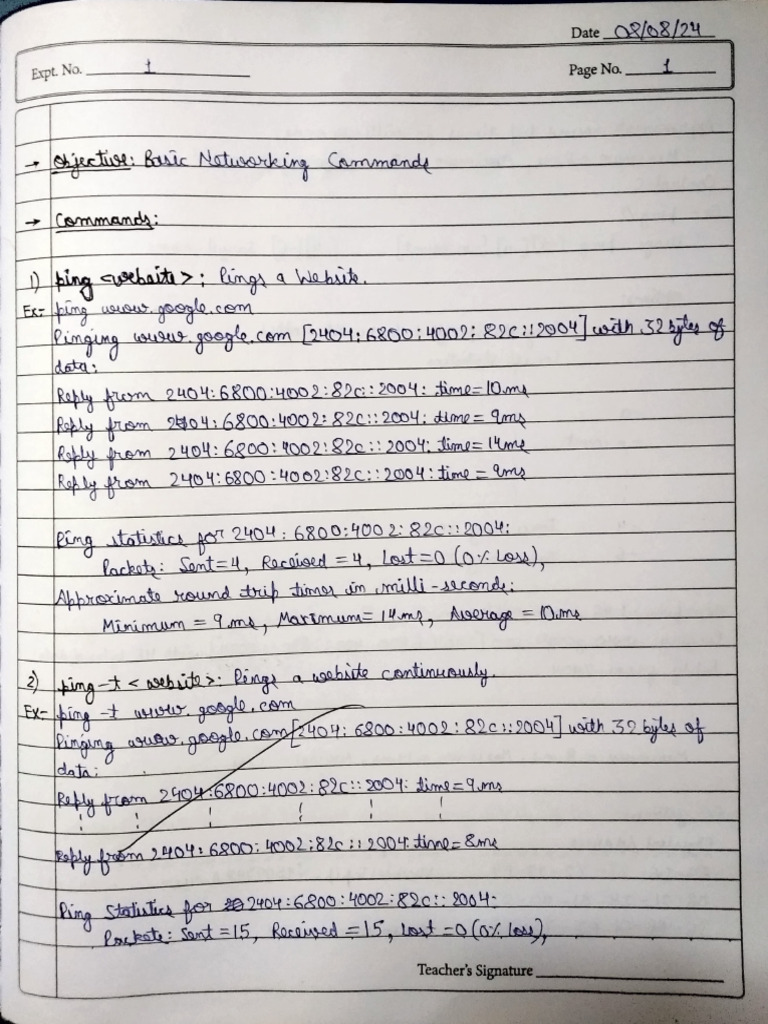 Date 08/08/24
Expt. No. 1
Page No. 1
→ Objective: Basic Networking Commands
→ Commands:
1) ping <website>: Pings a Website.
Ex- ping www.google.com
Pinging www.google.com [2404:6800:4002:82c::2004] with 32 bytes of
data:
Reply from 2404:6800:4002:82c::2004: time=10ms
Reply from 2404:6800:4002:82c::2004: time=9ms
Reply from 2404:6800:4002:82c::2004: time=14ms
Reply from 2404:6800:4002:82c::2004: time=9ms
Ping statistics for 2404:6800:4002:82c::2004:
Packets: Sent=4, Received=4, Lost=0 (0% Loss),
Approximate round trip times in milli-seconds:
Minimum = 9ms, Maximum= 14ms, Average = 10ms
2) ping -t <website>: Pings a website continuously.
Ex- ping -t www.google.com
Pinging www.google.com [2404:6800:4002:82c::2004] with 32 bytes of
data:
Reply from 2404:6800:4002:82c::2004: time=9ms
Reply from 2404:6800:4002:82c::2004: time=8ms
Ping Statistics for 2404:6800:4002:82c::2004:
Packets: Sent=15, Received=15, Lost=0 (0% loss),
Teacher's Signature